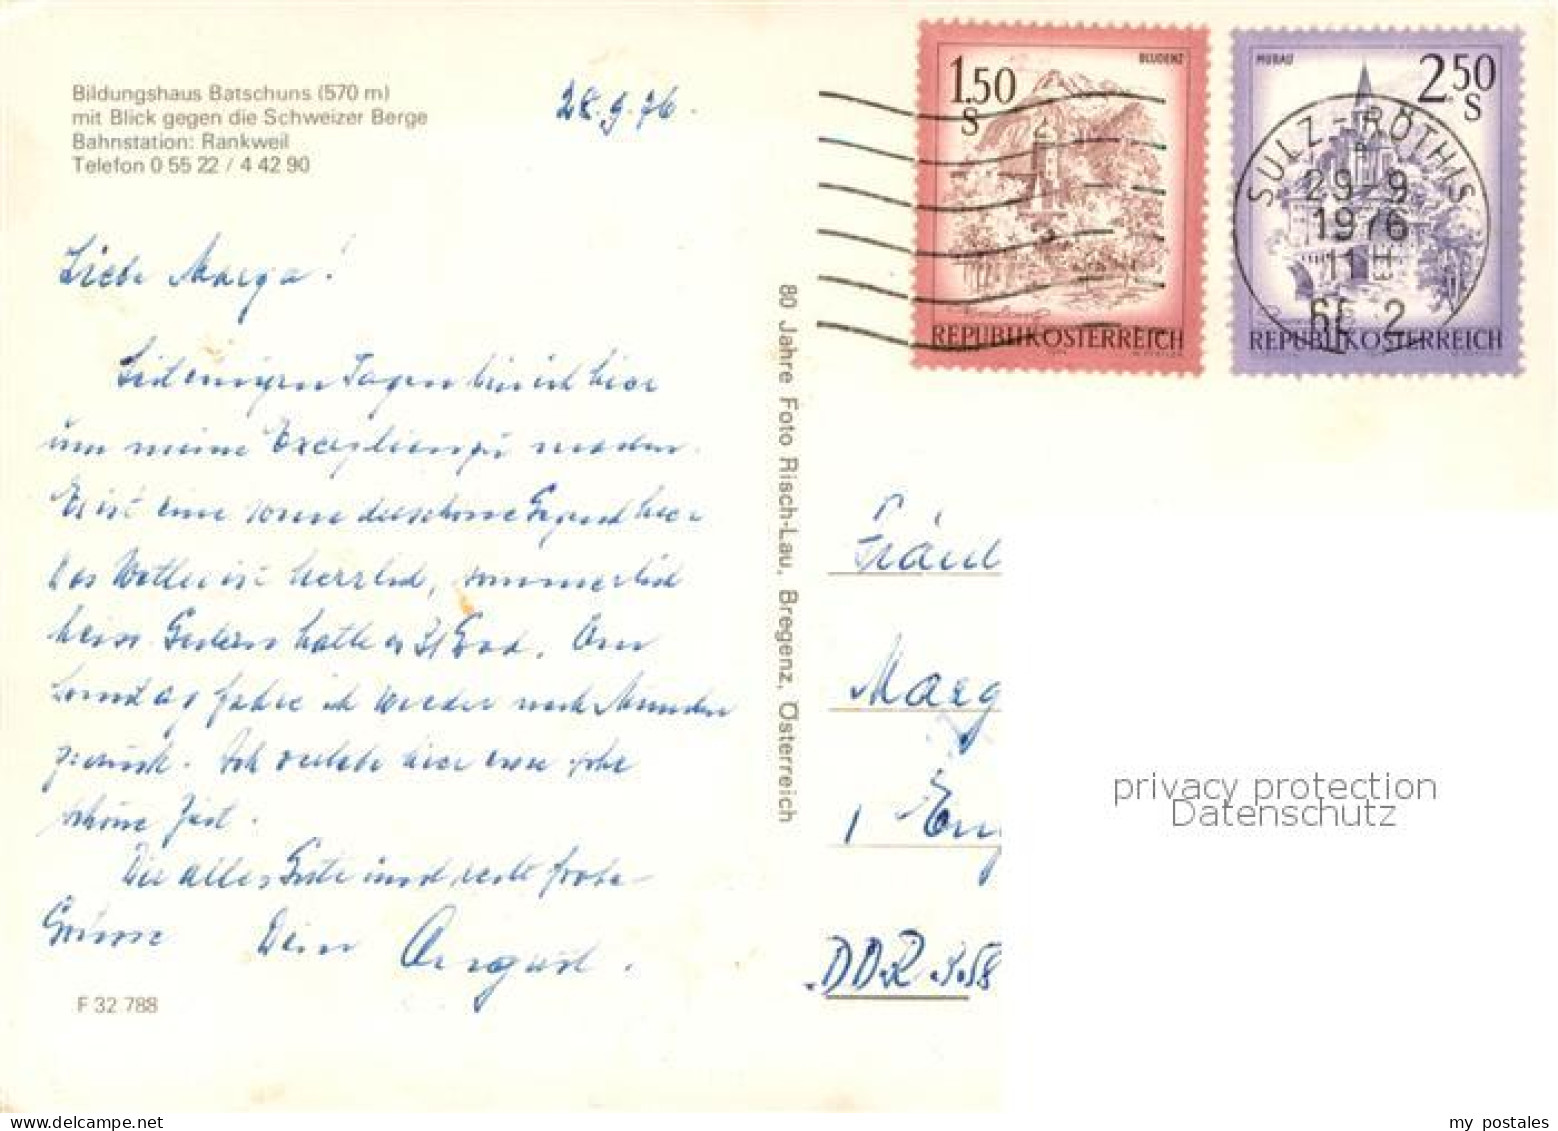 Bildungshaus Batschuns (570 m)
mit Blick gegen die Schweizer Berge
Bahnstation: Rankweil
Telefon 0 55 22 / 4 42 90
28.9.76.
Liebe Marga!
Seit einigen Tagen bin ich hier
um meine Exerzitien zu machen.
Es ist eine wunderschöne Gegend hier
das Wetter ist herrlich, sommerlich
heiss. Gestern hatte es 31 Grad. Am
Sonntag fahre ich wieder nach München
zurück. Ich verlebe hier eine sehr
schöne Zeit.
Dir alles Gute und recht frohe
Grüsse Dein August.
F 32 788
80 Jahre Foto Risch-Lau, Bregenz, Österreich
1.50 S
BLUDENZ
REPUBLIK ÖSTERREICH
2.50 S
MURAU
REPUBLIK ÖSTERREICH
SULZ-RÖTHIS
29-9
1976
11
68 2
Fräul
Marg
DDR
privacy protection
Datenschutz
my postales